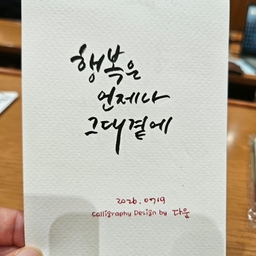 행복은
언제나
그대곁에
2026. 0719
Calligraphy Design by 다움